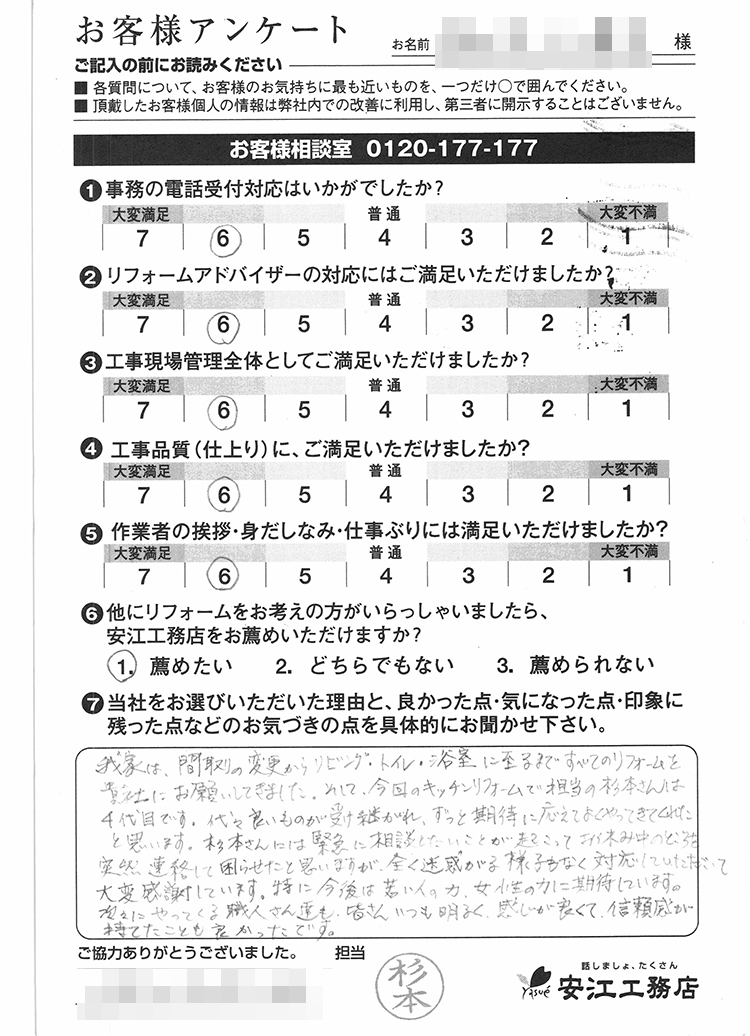 お客様アンケート
お名前 様
ご記入の前にお読みください
■ 各質問について、お客様のお気持ちに最も近いものを、一つだけ〇で囲んでください。
■ 頂戴したお客様個人の情報は弊社内での改善に利用し、第三者に開示することはございません。
お客様相談室 0120-177-177
❶ 事務の電話受付対応はいかがでしたか?
大変満足 普通 大変不満
7 6 5 4 3 2 1
❷ リフォームアドバイザーの対応にはご満足いただけましたか?
大変満足 普通 大変不満
7 6 5 4 3 2 1
❸ 工事現場管理全体としてご満足いただけましたか?
大変満足 普通 大変不満
7 6 5 4 3 2 1
❹ 工事品質(仕上り)に、ご満足いただけましたか?
大変満足 普通 大変不満
7 6 5 4 3 2 1
❺ 作業者の挨拶・身だしなみ・仕事ぶりには満足いただけましたか?
大変満足 普通 大変不満
7 6 5 4 3 2 1
❻ 他にリフォームをお考えの方がいらっしゃいましたら、
安江工務店をお薦めいただけますか?
1. 薦めたい 2. どちらでもない 3. 薦められない
❼ 当社をお選びいただいた理由と、良かった点・気になった点・印象に
残った点などのお気づきの点を具体的にお聞かせ下さい。
我家は、間取りの変更からリビング・トイレ・浴室に至るまですべてのリフォームを
貴社にお願いしてきました。そして、今回のキッチンリフォームで担当の杉本さんは
4代目です。代々良いものが受け継がれ、ずっと期待に応えてよくやってきてくれた
と思います。杉本さんには緊急に相談したいことが起こってお休み中のところを
突然連絡して困らせたと思いますが、全く迷惑がる様子もなく対応していただいて
大変感謝しています。特に今後は若い人の力、女性の力に期待しています。
次々にやってくる職人さん達も、皆さんいつも明るく、感じが良くて、信頼感が
持てたことも良かったです。
ご協力ありがとうございました。 担当
杉本
話しましょ、たくさん
Yasué 安江工務店